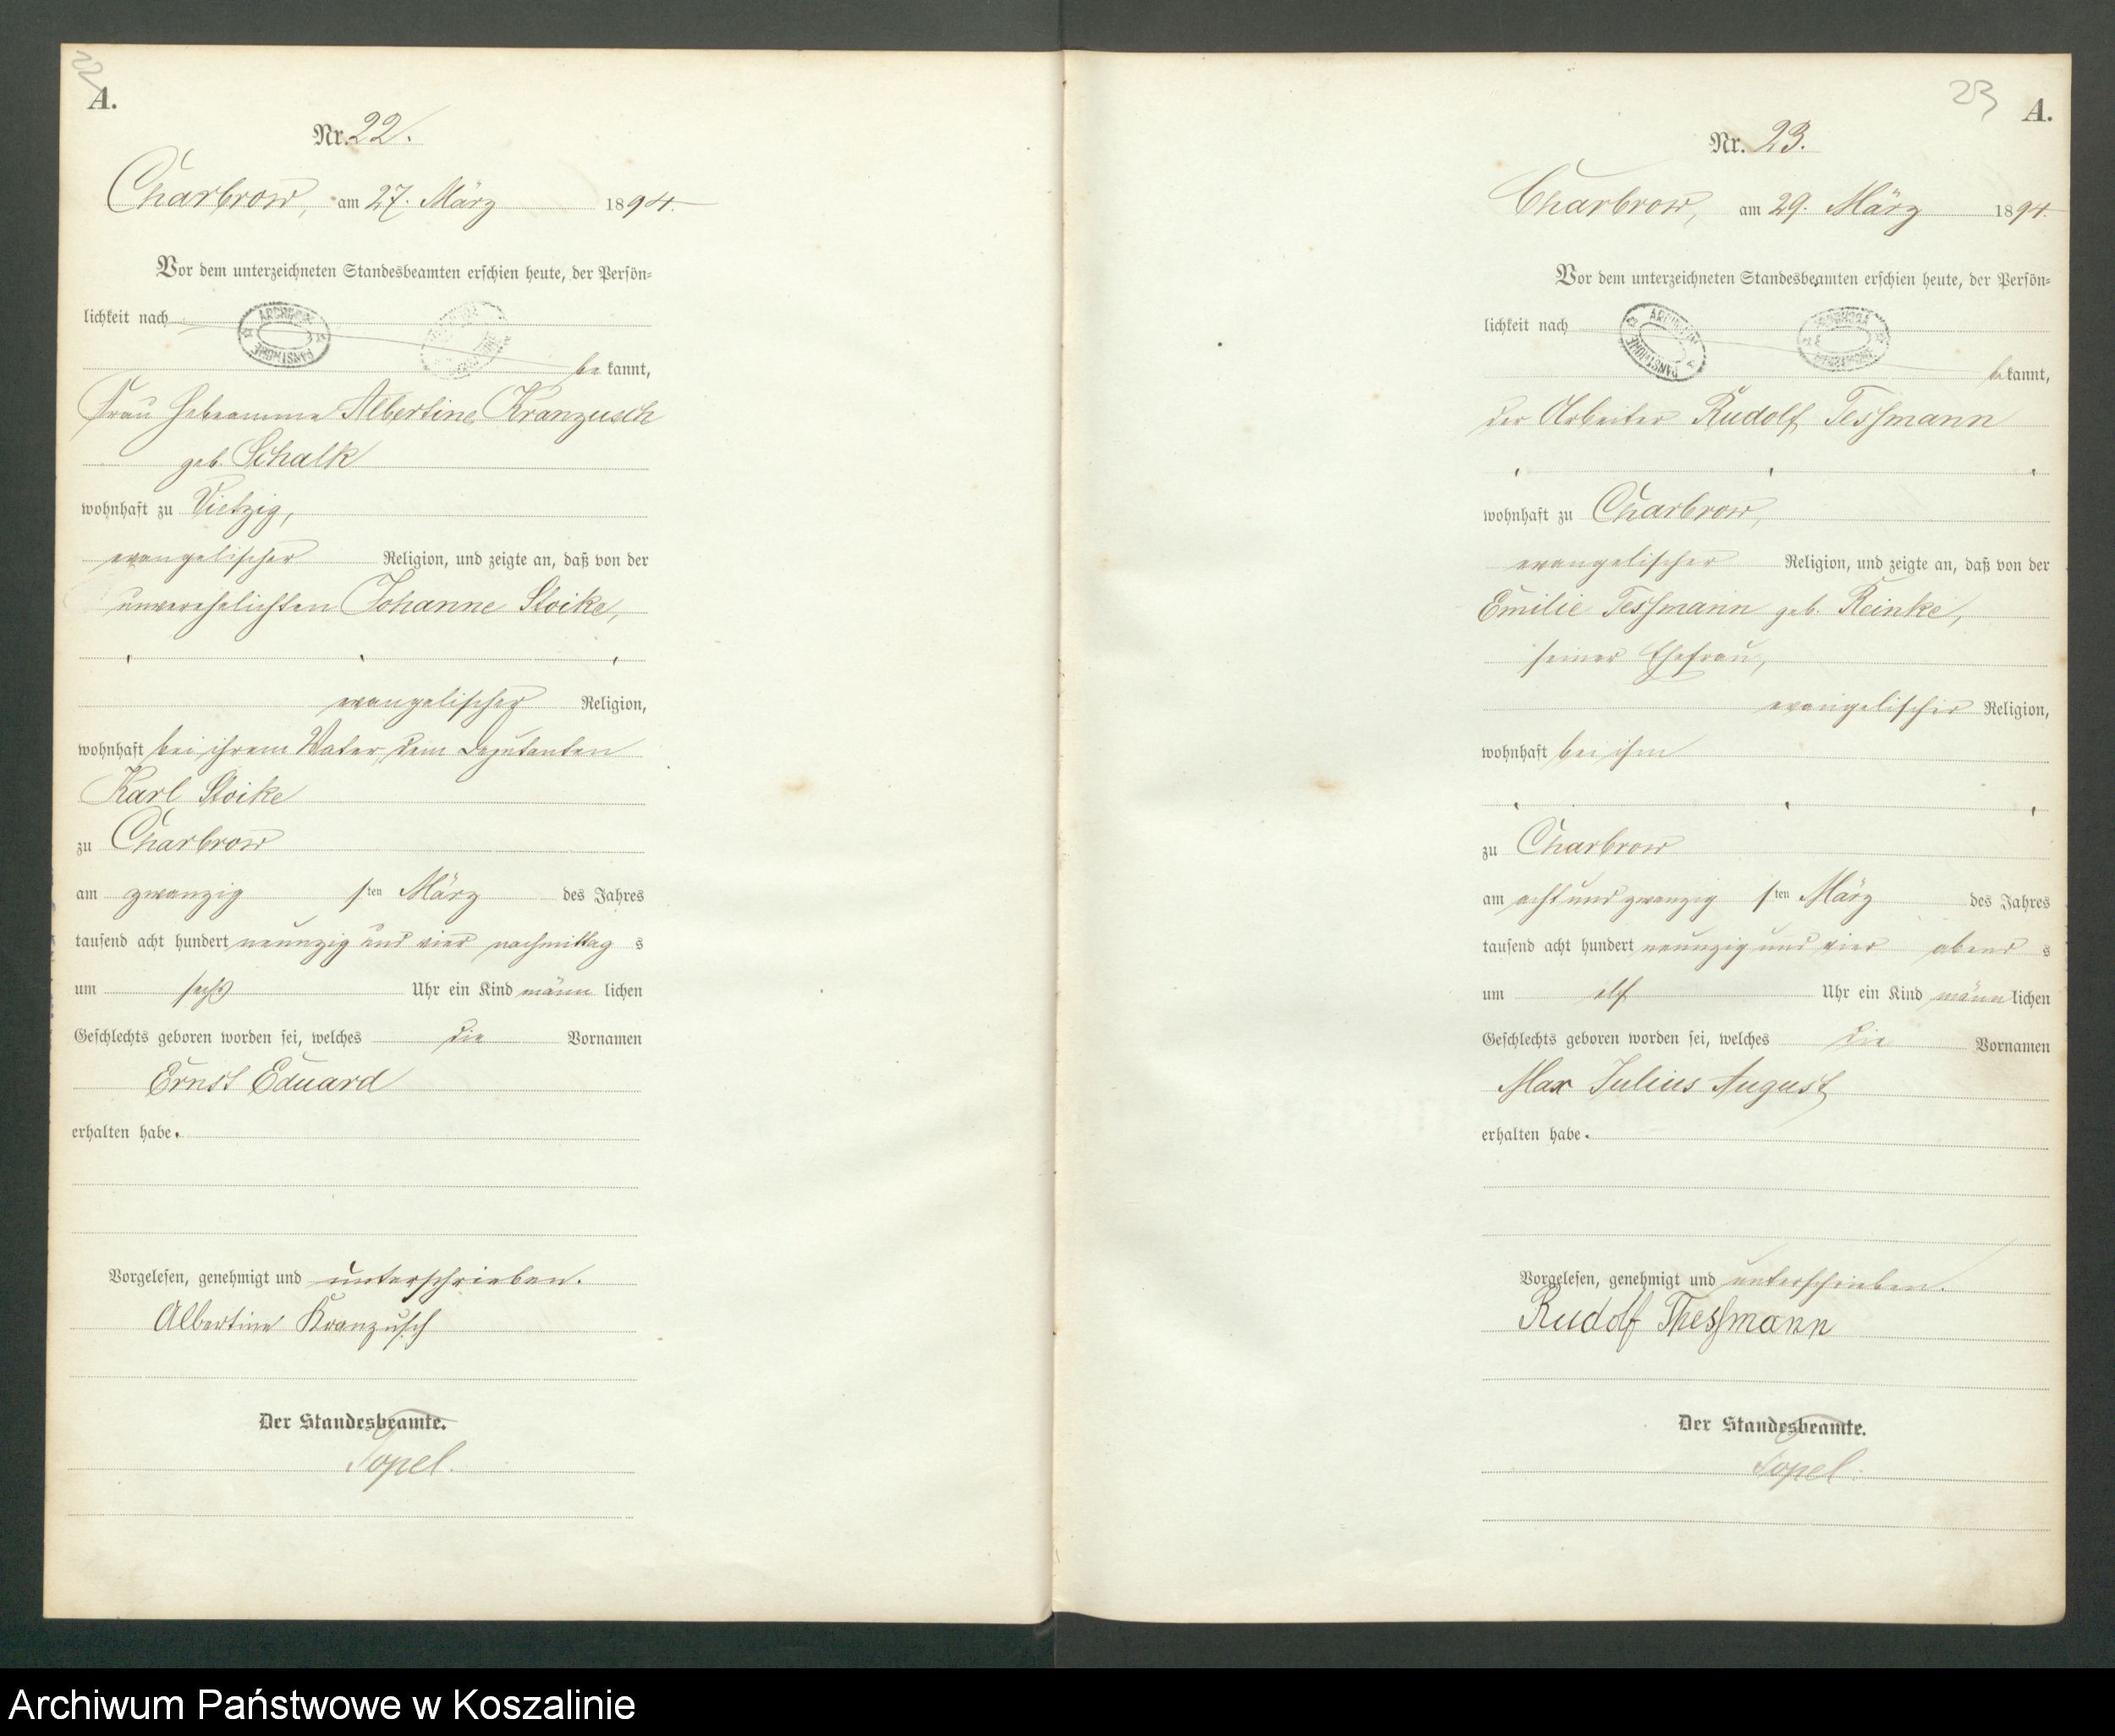 22
A.
Nr. 22.
Charbrow, am 27. März 1894.
Vor dem unterzeichneten Standesbeamten erschien heute, der Persön-
lichkeit nach
be kannt,
Frau Hebeamme Albertine Kranzusch
geb. Schalk
wohnhaft zu Vietzig,
evangelischer Religion, und zeigte an, daß von der
unverehelichten Johanne Stoike,
evangelischer Religion,
wohnhaft bei ihrem Vater, dem Deputanten
Karl Stoike
zu Charbrow
am zwanzig sten März des Jahres
tausend acht hundert neunzig und vier nachmittag s
um sechs Uhr ein Kind männ lichen
Geschlechts geboren worden sei, welches die Vornamen
Ernst Eduard
erhalten habe.
Vorgelesen, genehmigt und unterschrieben.
Albertine Kranzusch
Der Standesbeamte.
Topel.
23
A.
Nr. 23.
Charbrow, am 29. März 1894.
Vor dem unterzeichneten Standesbeamten erschien heute, der Persön-
lichkeit nach
be kannt,
der Arbeiter Rudolf Tessmann
wohnhaft zu Charbrow,
evangelischer Religion, und zeigte an, daß von der
Emilie Tessmann geb. Reinke,
seiner Ehefrau,
evangelischer Religion,
wohnhaft bei ihm
zu Charbrow
am acht und zwanzig sten März des Jahres
tausend acht hundert neunzig und vier abend s
um elf Uhr ein Kind männ lichen
Geschlechts geboren worden sei, welches die Vornamen
Max Julius August
erhalten habe.
Vorgelesen, genehmigt und unterschrieben.
Rudolf Thessmann
Der Standesbeamte.
Topel.
Archiwum Państwowe w Koszalinie